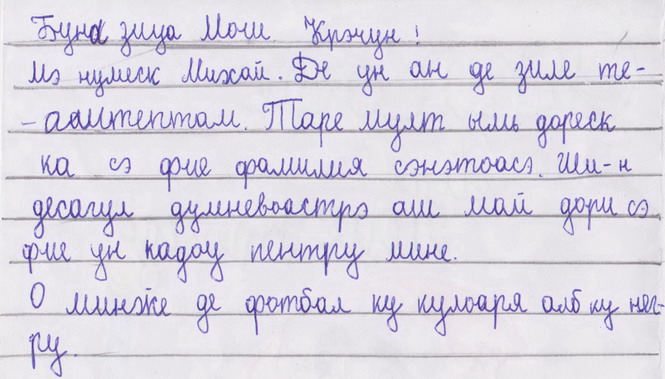 Буна зица Мош Крэчун!
Мэ нумеск Михай. Де ун ан де зиле те-
-аштептам. Таре мулт ымь дореск
ка сэ фие фамилия сэнэтоасэ. Ши-н
десагул думневоастрэ аш май дори сэ
фие ун кадоу пентру мине.
О минже де фотбал ку кулоаря алб ку нег-
ру.